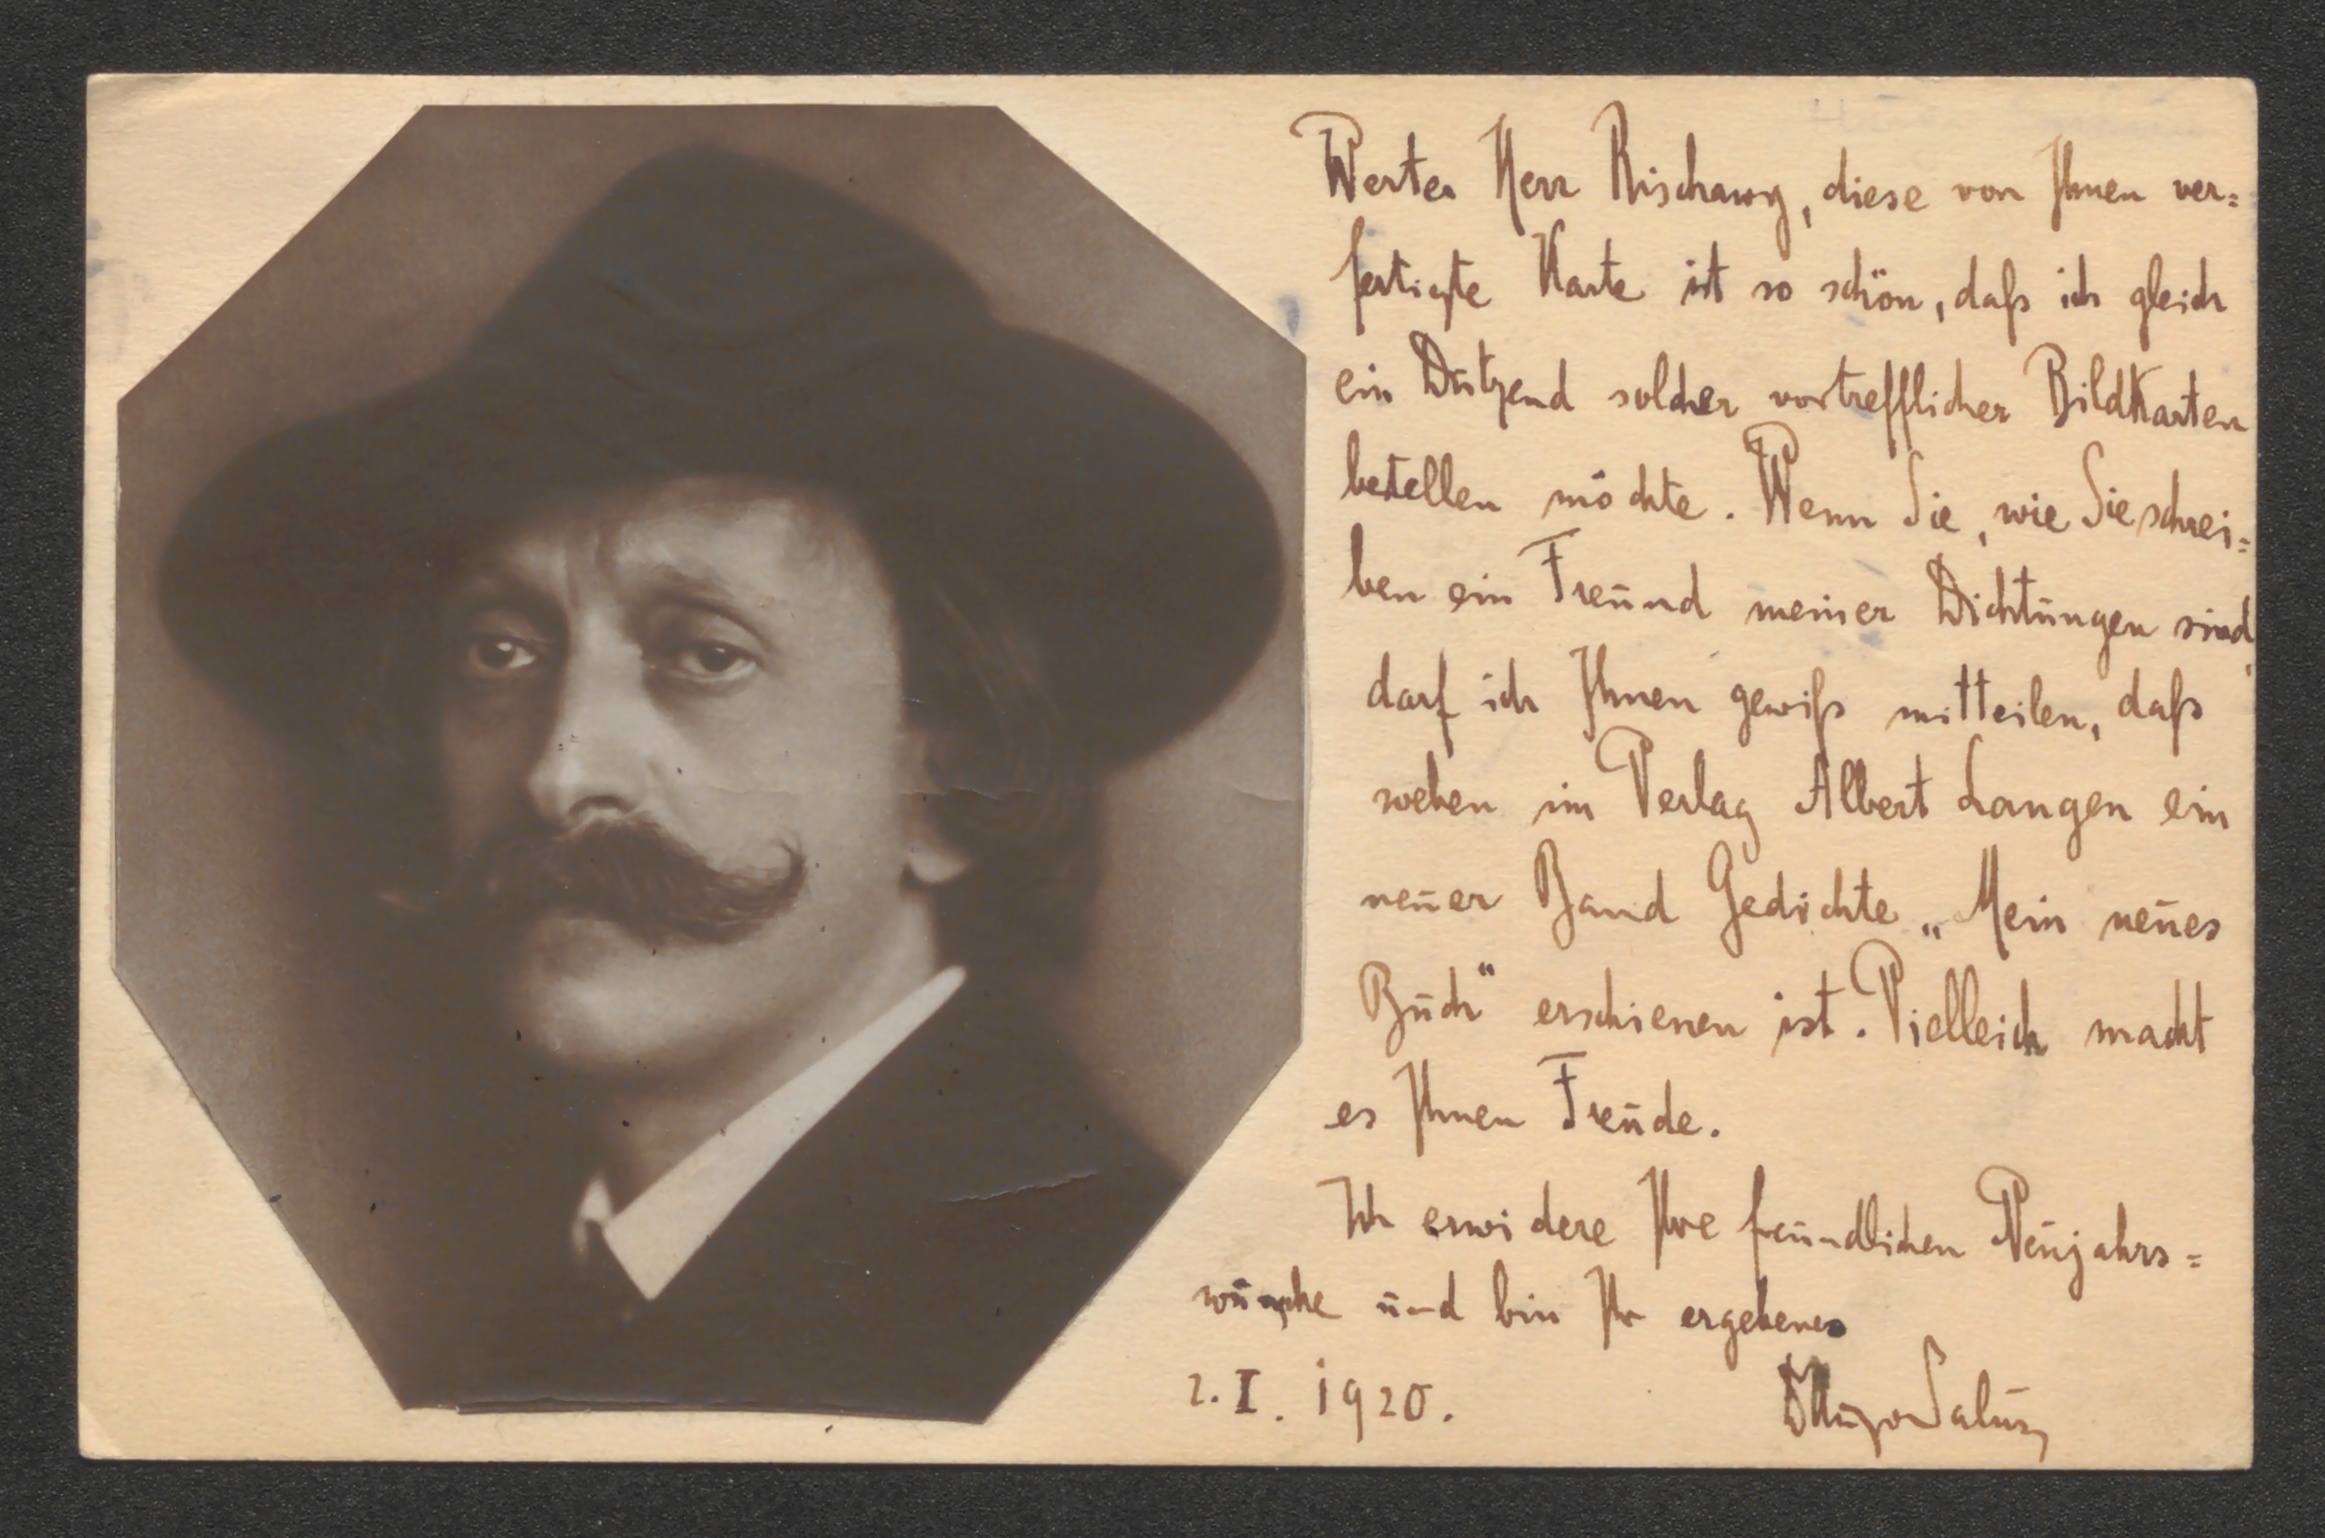 Werter Herr Rischawy, diese von Ihnen ver=
fertigte Karte ist so schön, daß ich gleich
ein Dutzend solcher vortrefflicher Bildkarten
bestellen möchte. Wenn Sie, wie Sie schrei=
ben ein Freund meiner Dichtungen sind,
darf ich Ihnen gewiß mitteilen, daß
soeben im Verlag Albert Langen ein
neuer Band Gedichte „Mein neues
Buch“ erschienen ist. Vielleich macht
es Ihnen Freude.
Ich erwidere Ihre freundlichen Neujahrs=
wünsche und bin Ihr ergebener
2. I. 1920.
Hugo Salus